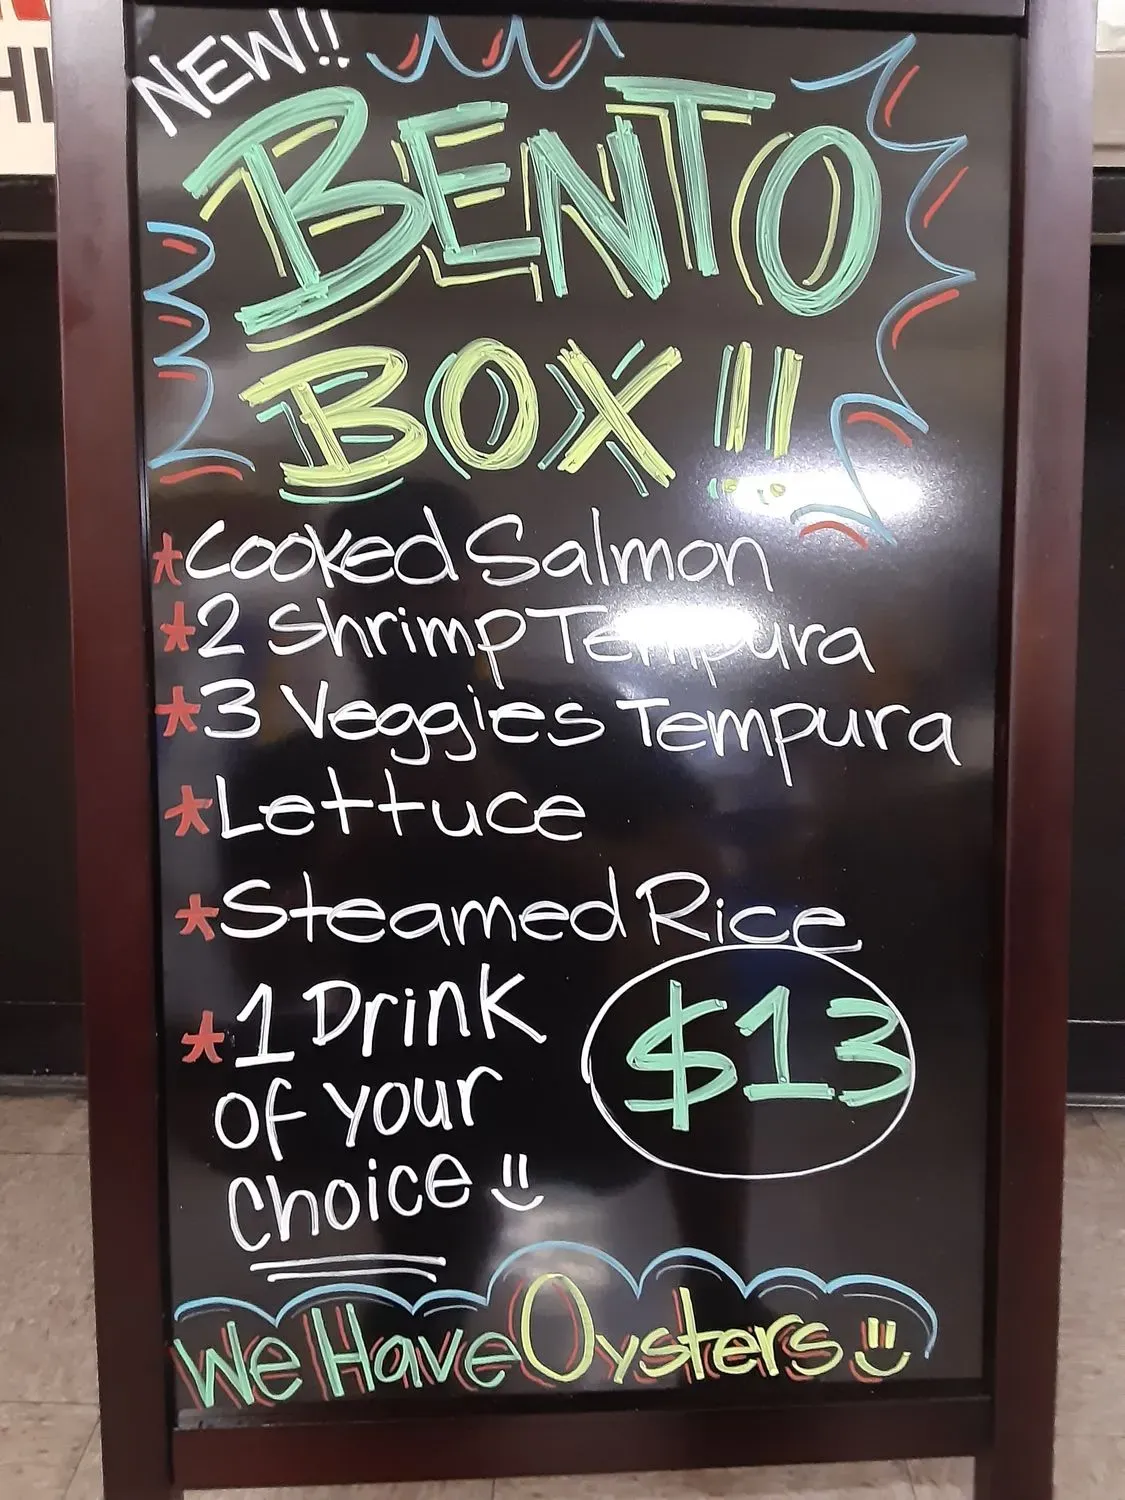 NEW!!
BENTO
BOX!!
*Cooked Salmon
*2 Shrimp Tempura
*3 Veggies Tempura
*Lettuce
*Steamed Rice
*1 Drink
of your
Choice
$13
We Have Oysters